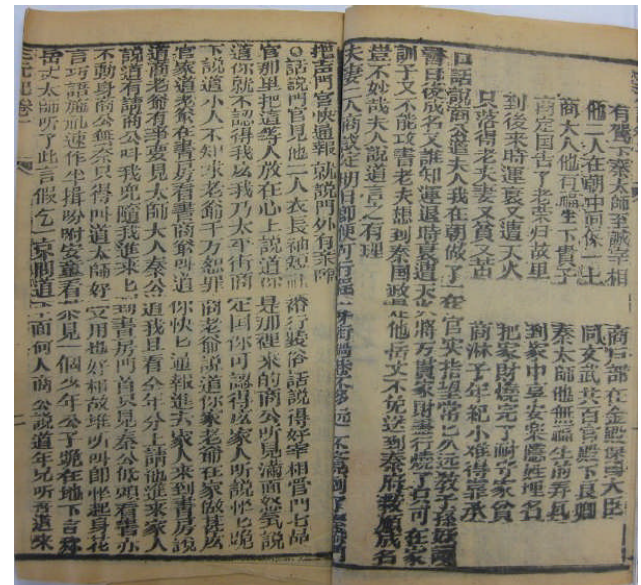 有駕下秦太師至誠宰相　商戶部在金殿保身大臣
他二人在朝中同保一主　同文武共百官殿下良卿
商大人他有福生下貴子　秦太師他無福生前弄具
商定国告了老荣归故里　到家中享安樂隱姓埋名
到後來時運衰又遭天火　把家財燒完了耐守家貧
只落得老夫妻又貧又苦　商琳子年紀小难得罪承
〇話說商公道夫人我在朝做了一在官实指望常七久远教子孫讀
書日後成名又誰知運退時衰遭天火將万貫家財盡行燒了古可在家
訓子又不能攻書老夫想到秦国政是他岳丈不免送到秦府教願成名
豈不妙哉夫人說道言之有理
夫妻二人商議定　明日卽便可行程　街過巷不多远　不覚到了秦府門
把吉門官快通報　就說門外有某降
〇話說門官見他二人衣長袖短　行裝俗話說得好宰相官門七品
官那里把這等人放在心上說道你是那裡来的商公听見滿面怒气說
道你就不認得我庅我乃太平街商定囯你可認得庅家人听說忙七跪
下說道小人不知求老爺千万恕罪商老爺說道你家老爺在家做甚庅
官家道老爺在書房看書商爺听道你快七通報進去家人来到書房說
道商老爺有事要見太師大人秦公道我且看全年分上請他進來家人
說道有請商公叫我兒隨我進来七到書房門首只見秦公低頭看書亦
不動身商公無奈只得叫道太師好又用也好相故难听叫卽忙起身花
言巧語施礼速作坐揖吩咐安童看茶見一個少年公子跪在地下言称
岳丈太師听了此言假乞一亰問道下面何人商公說道年兄听言遠來
三元記卷一